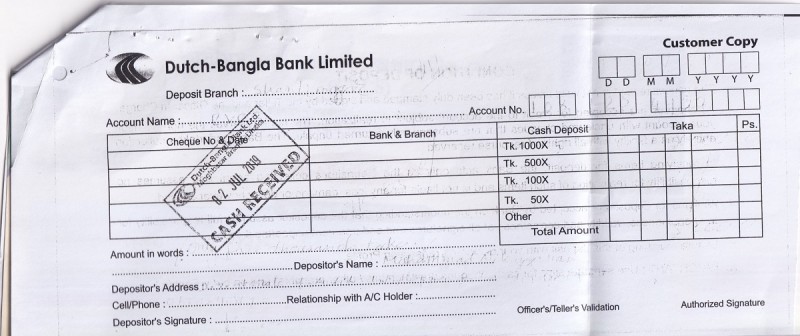 Customer Copy
Dutch-Bangla Bank Limited
D D M M Y Y Y Y
Deposit Branch :
Account Name :
Account No.
Cheque No & Date Bank & Branch Cash Deposit Taka Ps.
Tk. 1000X
Tk. 500X
Tk. 100X
Tk. 50X
Other
Total Amount
Dutch-Bangla Bank Ltd.
02 JUL 2010
CASH RECEIVED
Amount in words :
Depositor's Name :
Depositor's Address :
Cell/Phone : Relationship with A/C Holder :
Depositor's Signature :
Officer's/Teller's Validation
Authorized Signature